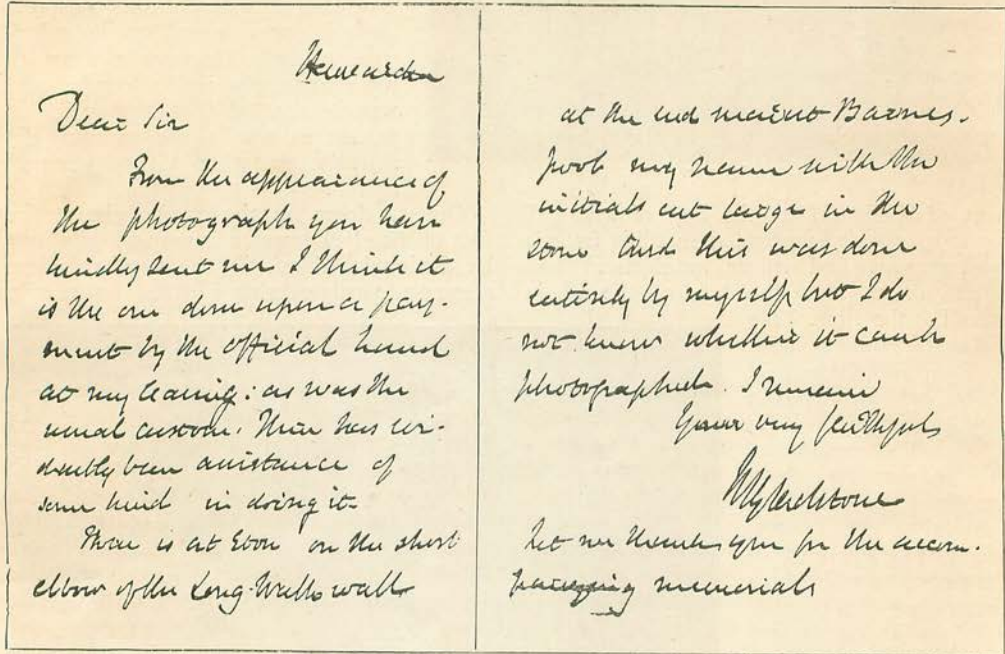 Hawarden
Dear Sir
From the appearance of
the photograph you have
kindly sent me I think it
is the one done upon a pay-
ment by the official hand
at my leaving: as was the
usual custom. There has evi-
dently been assistance of
some kind in doing it.
There is at Eton on the short
elbow of the Long-Walk wall
at the end nearest Barnes-
pool my name with the
initials cut large in the
stone and this was done
entirely by myself but I do
not know whether it can be
photographed. I remain
Your very faithful
WEGladstone
Let me thank you for the accom-
panying memorials